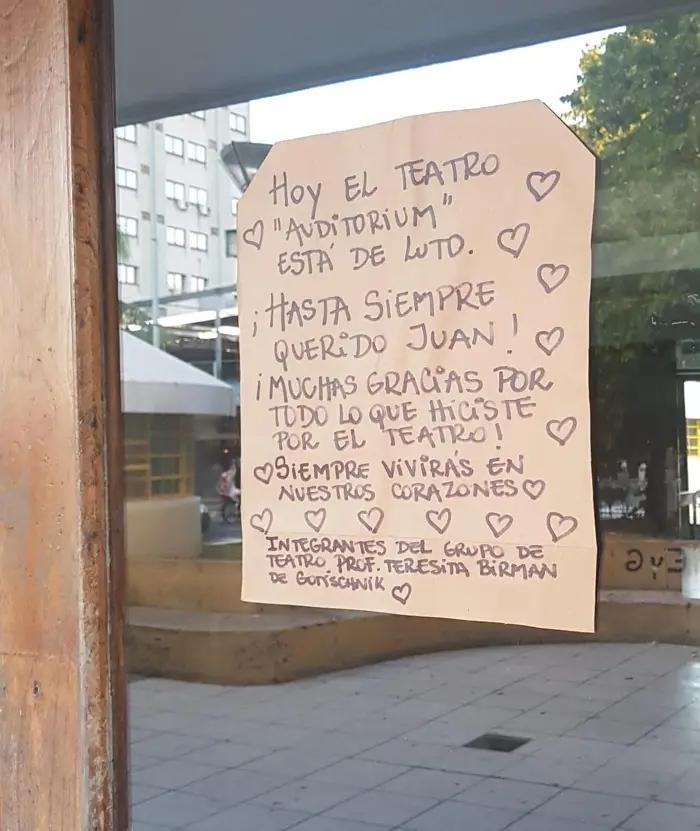 Hoy EL TEATRO
"AUDITORIUM"
ESTÁ DE LUTO.
¡HASTA SIEMPRE
QUERIDO JUAN!
¡MUCHAS GRACIAS POR
TODO LO QUE HICISTE
POR EL TEATRO!
SIEMPRE VIVIRÁS EN
NUESTROS CORAZONES
INTEGRANTES DEL GRUPO DE
TEATRO PROF. TERESITA BIRMAN
DE GORISCHNIK